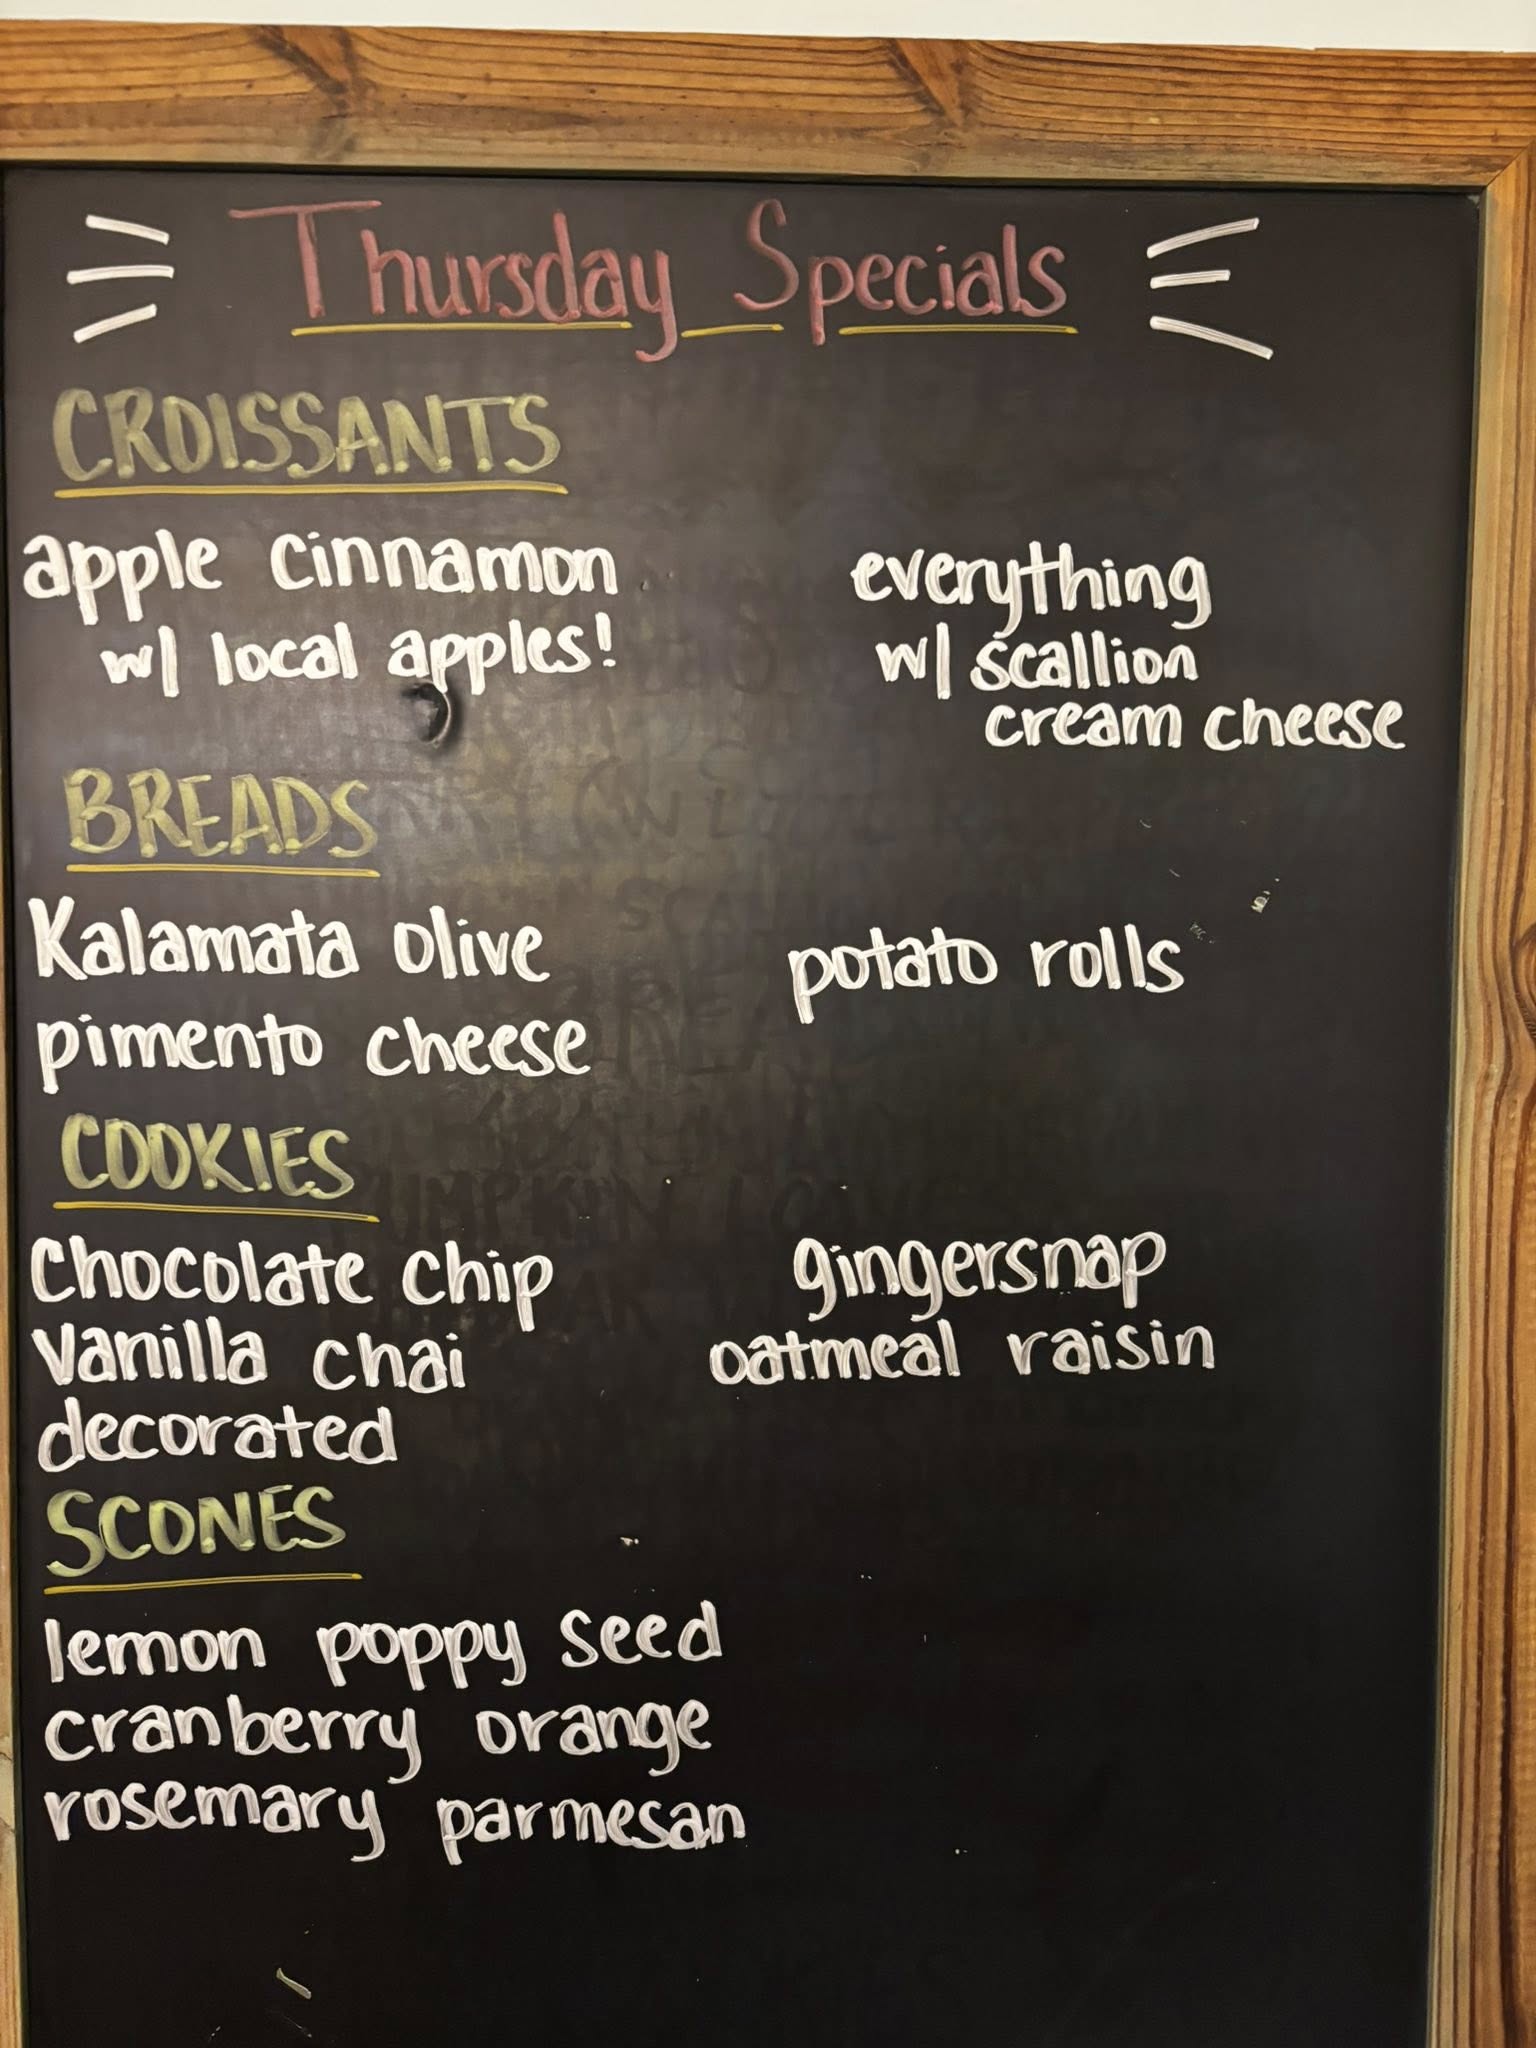 Thursday Specials
CROISSANTS
apple cinnamon
w/ local apples!
everything
w/ scallion
cream cheese
BREADS
Kalamata olive
pimento cheese
potato rolls
COOKIES
Chocolate chip
vanilla chai
decorated
gingersnap
oatmeal raisin
SCONES
lemon poppy seed
cranberry orange
rosemary parmesan